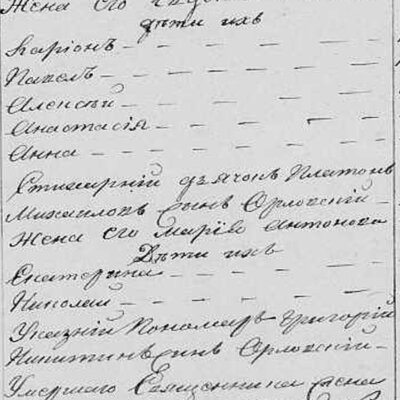 Жена его
дѣти ихъ
Иаріонъ
Павелъ
Алексѣй
Анастасія
Анна
Стихарній дьячокъ Платонъ
Михайловъ сынъ Орловскій
Жена его Марія Антонова
Дѣти ихъ
Екатерина
Николай
Указній Пономаръ Григорій
Никитинъ сынъ Орловскій
Умершаго Священника жена